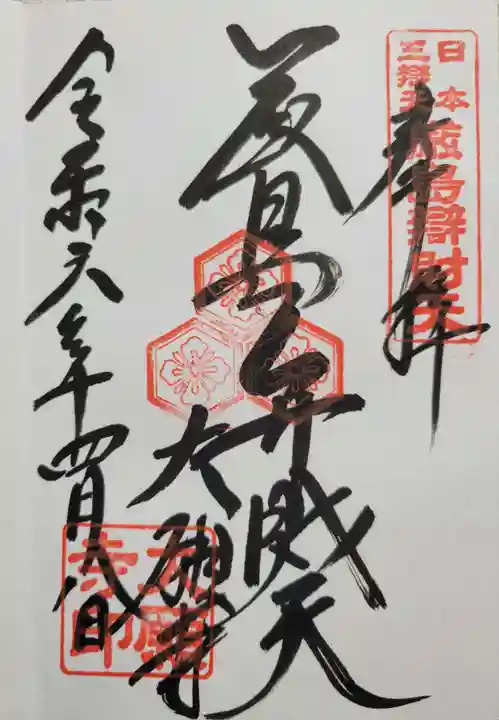 奉拝
日本
三辯天
厳島辯財天
厳島弁財天
大願寺
令和六年四月八日
大願
寺印